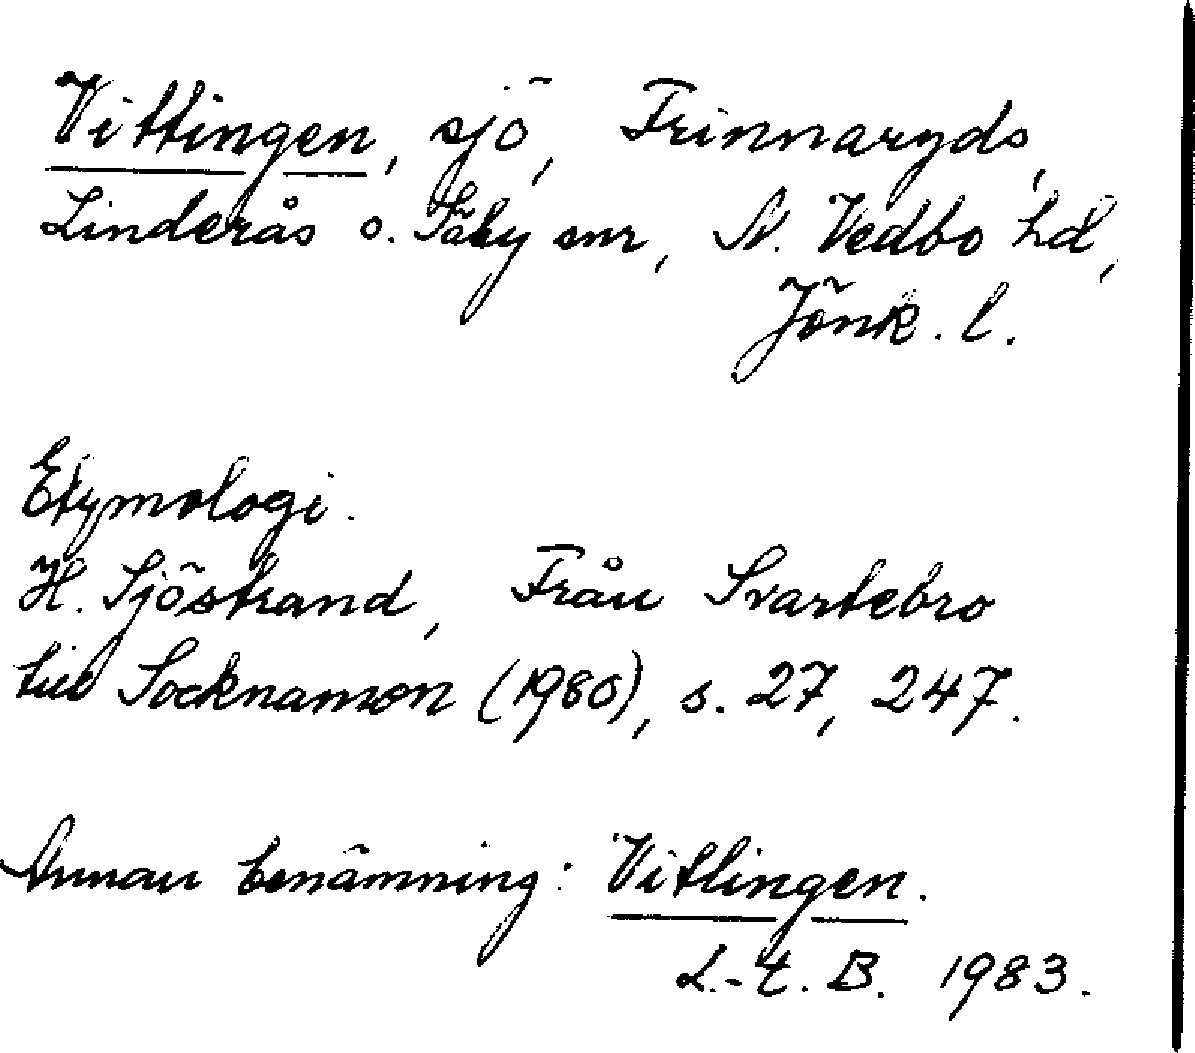 Vittingen, sjö, Frinnaryds,
Linderås o. Säby snr, N. Vedbo hd,
Jönk. l.
Etymologi.
H. Sjöstrand, Från Svartebro
till Socknamon (1980), s. 27, 247.
Annan benämning: Vitlingen.
L.-E. B. 1983.